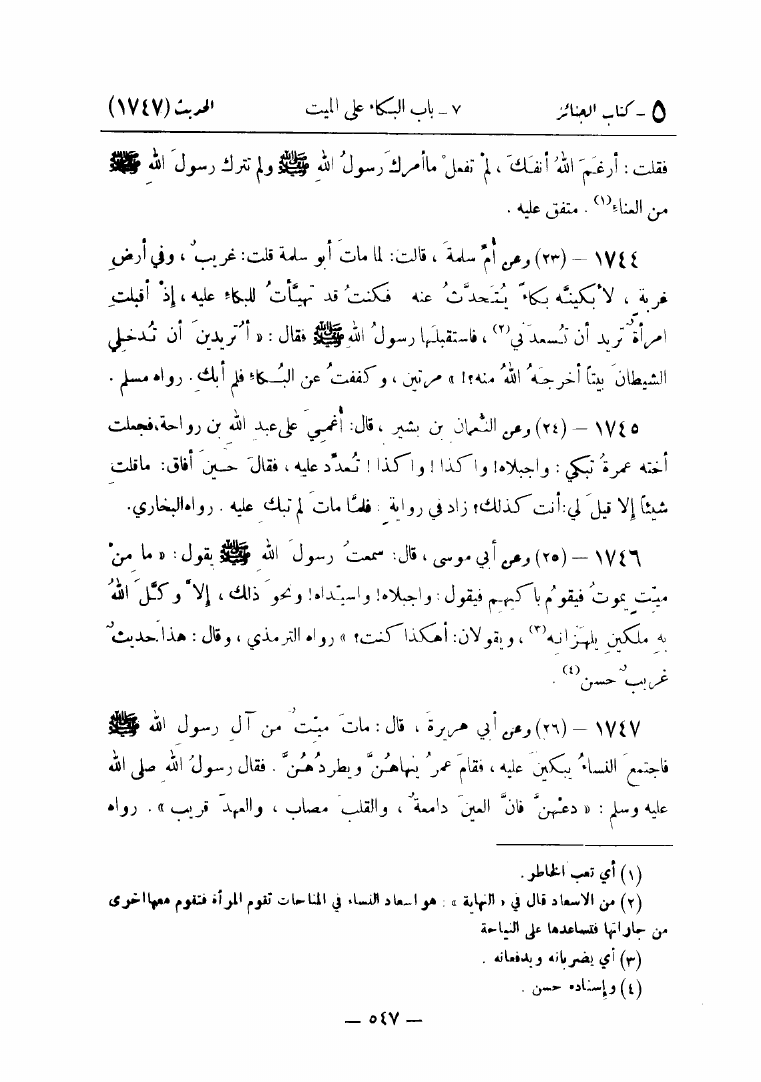 ٥ - كتاب الجنائز ٧ - باب البكاء على الميت الحديث (١٧٤٧)
فقلت : أرغَمَ اللهُ أنفَكَ ، لمْ تفعلْ ماأمركَ رسولُ اللهِ ﷺ ولم تترك رسولَ اللهِ ﷺ
من العناء(١) . متفق عليه .
١٧٤٤ - (٢٣) وعن أُمِّ سلمةَ ، قالت: لما ماتَ أبو سلمة قلت: غريبٌ ، وفي أرضِ
غربةٍ ، لأبكينَّه بكاءً يُتحدَّثُ عنه فكنتُ قد تهيَّأتُ للبكاءِ عليه ، إذْ أقبلتِ
امرأةٌ تريد أن تُسعدَني(٢) ، فاستقبلَها رسولُ اللهِ ﷺ فقال : « أتريدينَ أن تُدخلي
الشيطانَ بيتاً أخرجَهُ اللهُ منه؟! » مرتين ، وكففتُ عن البُكاءِ فلم أبكِ . رواه مسلم .
١٧٤٥ - (٢٤) وعن النُّعمانِ بن بشيرٍ ، قال: أُغميَ على عبدِ اللهِ بن رواحة، فجعلت
أخته عمرةُ تبكي : واجبلاه! واكذا! واكذا! تُعدِّد عليه ، فقالَ حينَ أفاق: ماقلتِ
شيئاً إلا قيلَ لي: أنت كذلك؟ زاد في روايةٍ : فلمَّا ماتَ لم تبكِ عليه . رواه البخاري.
١٧٤٦ - (٢٥) وعن أبي موسى ، قال: سمعتُ رسولَ اللهِ ﷺ يقول: « ما مِنْ
ميِّتٍ يموتُ فيقومُ باكيهم فيقول : واجبلاه! واسيِّداه! ونحوَ ذلك ، إلاَّ وكَّلَ اللهُ
بهِ ملكينِ يلهَزانِه(٣) ، ويقولان: أهكذا كنت؟ » رواه الترمذي ، وقال : هذا حديثٌ
غريبٌ حسن(٤) .
١٧٤٧ - (٢٦) وعن أبي هريرةَ ، قال : ماتَ ميِّتٌ من آلِ رسولِ اللهِ ﷺ
فاجتمعَ النساءُ يبكينَ عليه ، فقامَ عمرُ ينهاهُنَّ ويطردُهُنَّ . فقال رسولُ اللهِ صلى الله
عليه وسلم : « دعْهنَّ فانَّ العينَ دامعةٌ ، والقلبَ مصاب ، والعهدَ قريب » . رواه
(١) أي تعب الخاطر .
(٢) من الاسعاد قال في « النهاية » : هو اسعاد النساء في المناحات تقوم المرأة فتقوم معها اخرى
من جاراتها فتساعدها على النياحة
(٣) أي يضربانه ويدفعانه .
(٤) وإسناده حسن .
— ٥٤٧ —